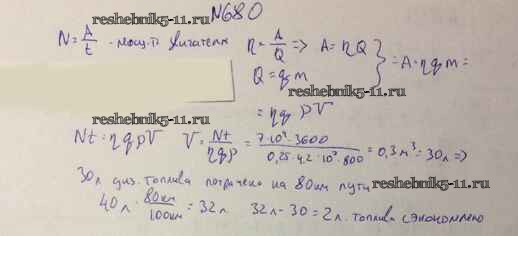 №680
reshebnik5-11.ru
N = A/t - мощ-ть двигателя η = A/Q => A = ηQ } = A = ηqm =
reshebnik5-11.ru
Q = qm
= ηqρV
reshebnik5-11.ru
Nt = ηqρV V = Nt/ηqρ = 7·10³·3600/0,25·42·10⁶·800 = 0,3 м³ = 30л =>
30л диз. топлива потрачено на 80км пути
reshebnik5-11.ru
40л · 80км/100км = 32л 32л - 30 = 2л. топлива сэкономлено
reshebnik5-11.ru